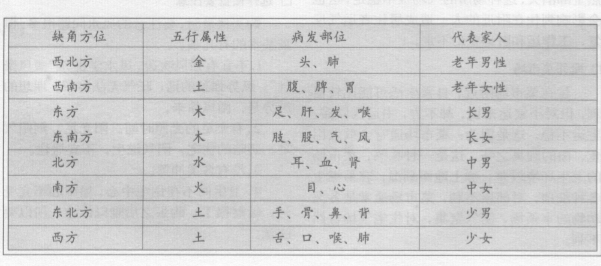 缺角方位 五行属性 病发部位 代表家人
西北方 金 头、肺 老年男性
西南方 土 腹、脾、胃 老年女性
东方 木 足、肝、发、喉 长男
东南方 木 肢、股、气、风 长女
北方 水 耳、血、肾 中男
南方 火 目、心 中女
东北方 土 手、骨、鼻、背 少男
西方 土 舌、口、喉、肺 少女